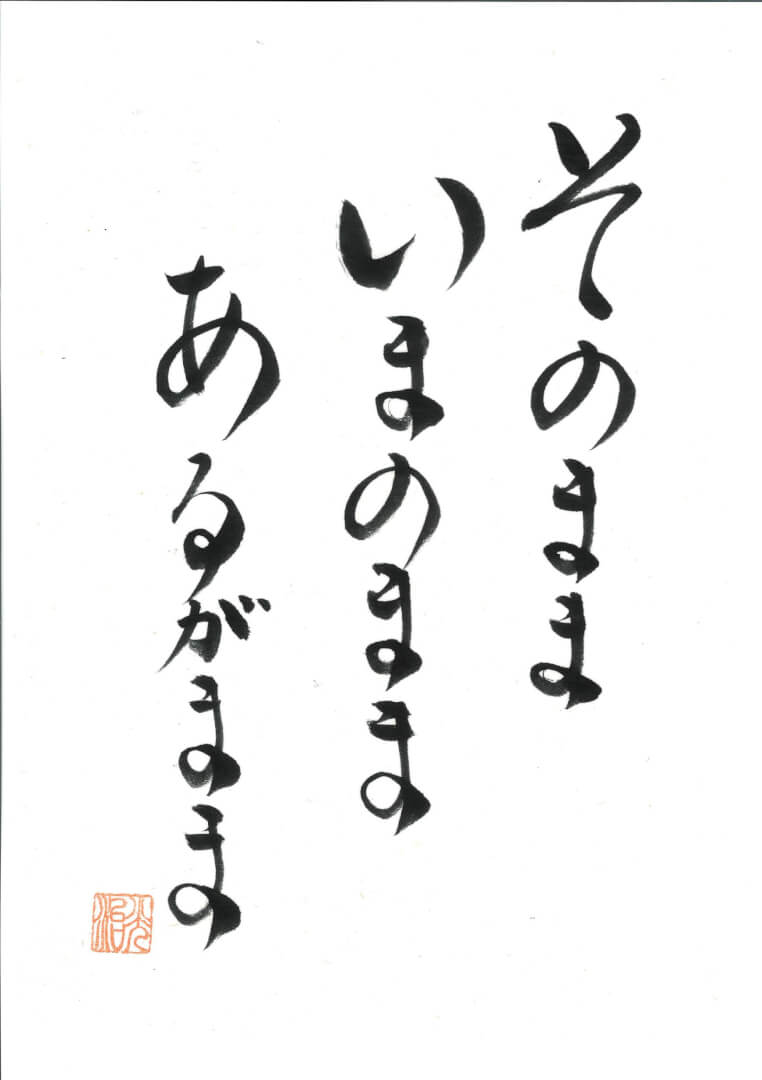 そのまま
いまのまま
あるがまま